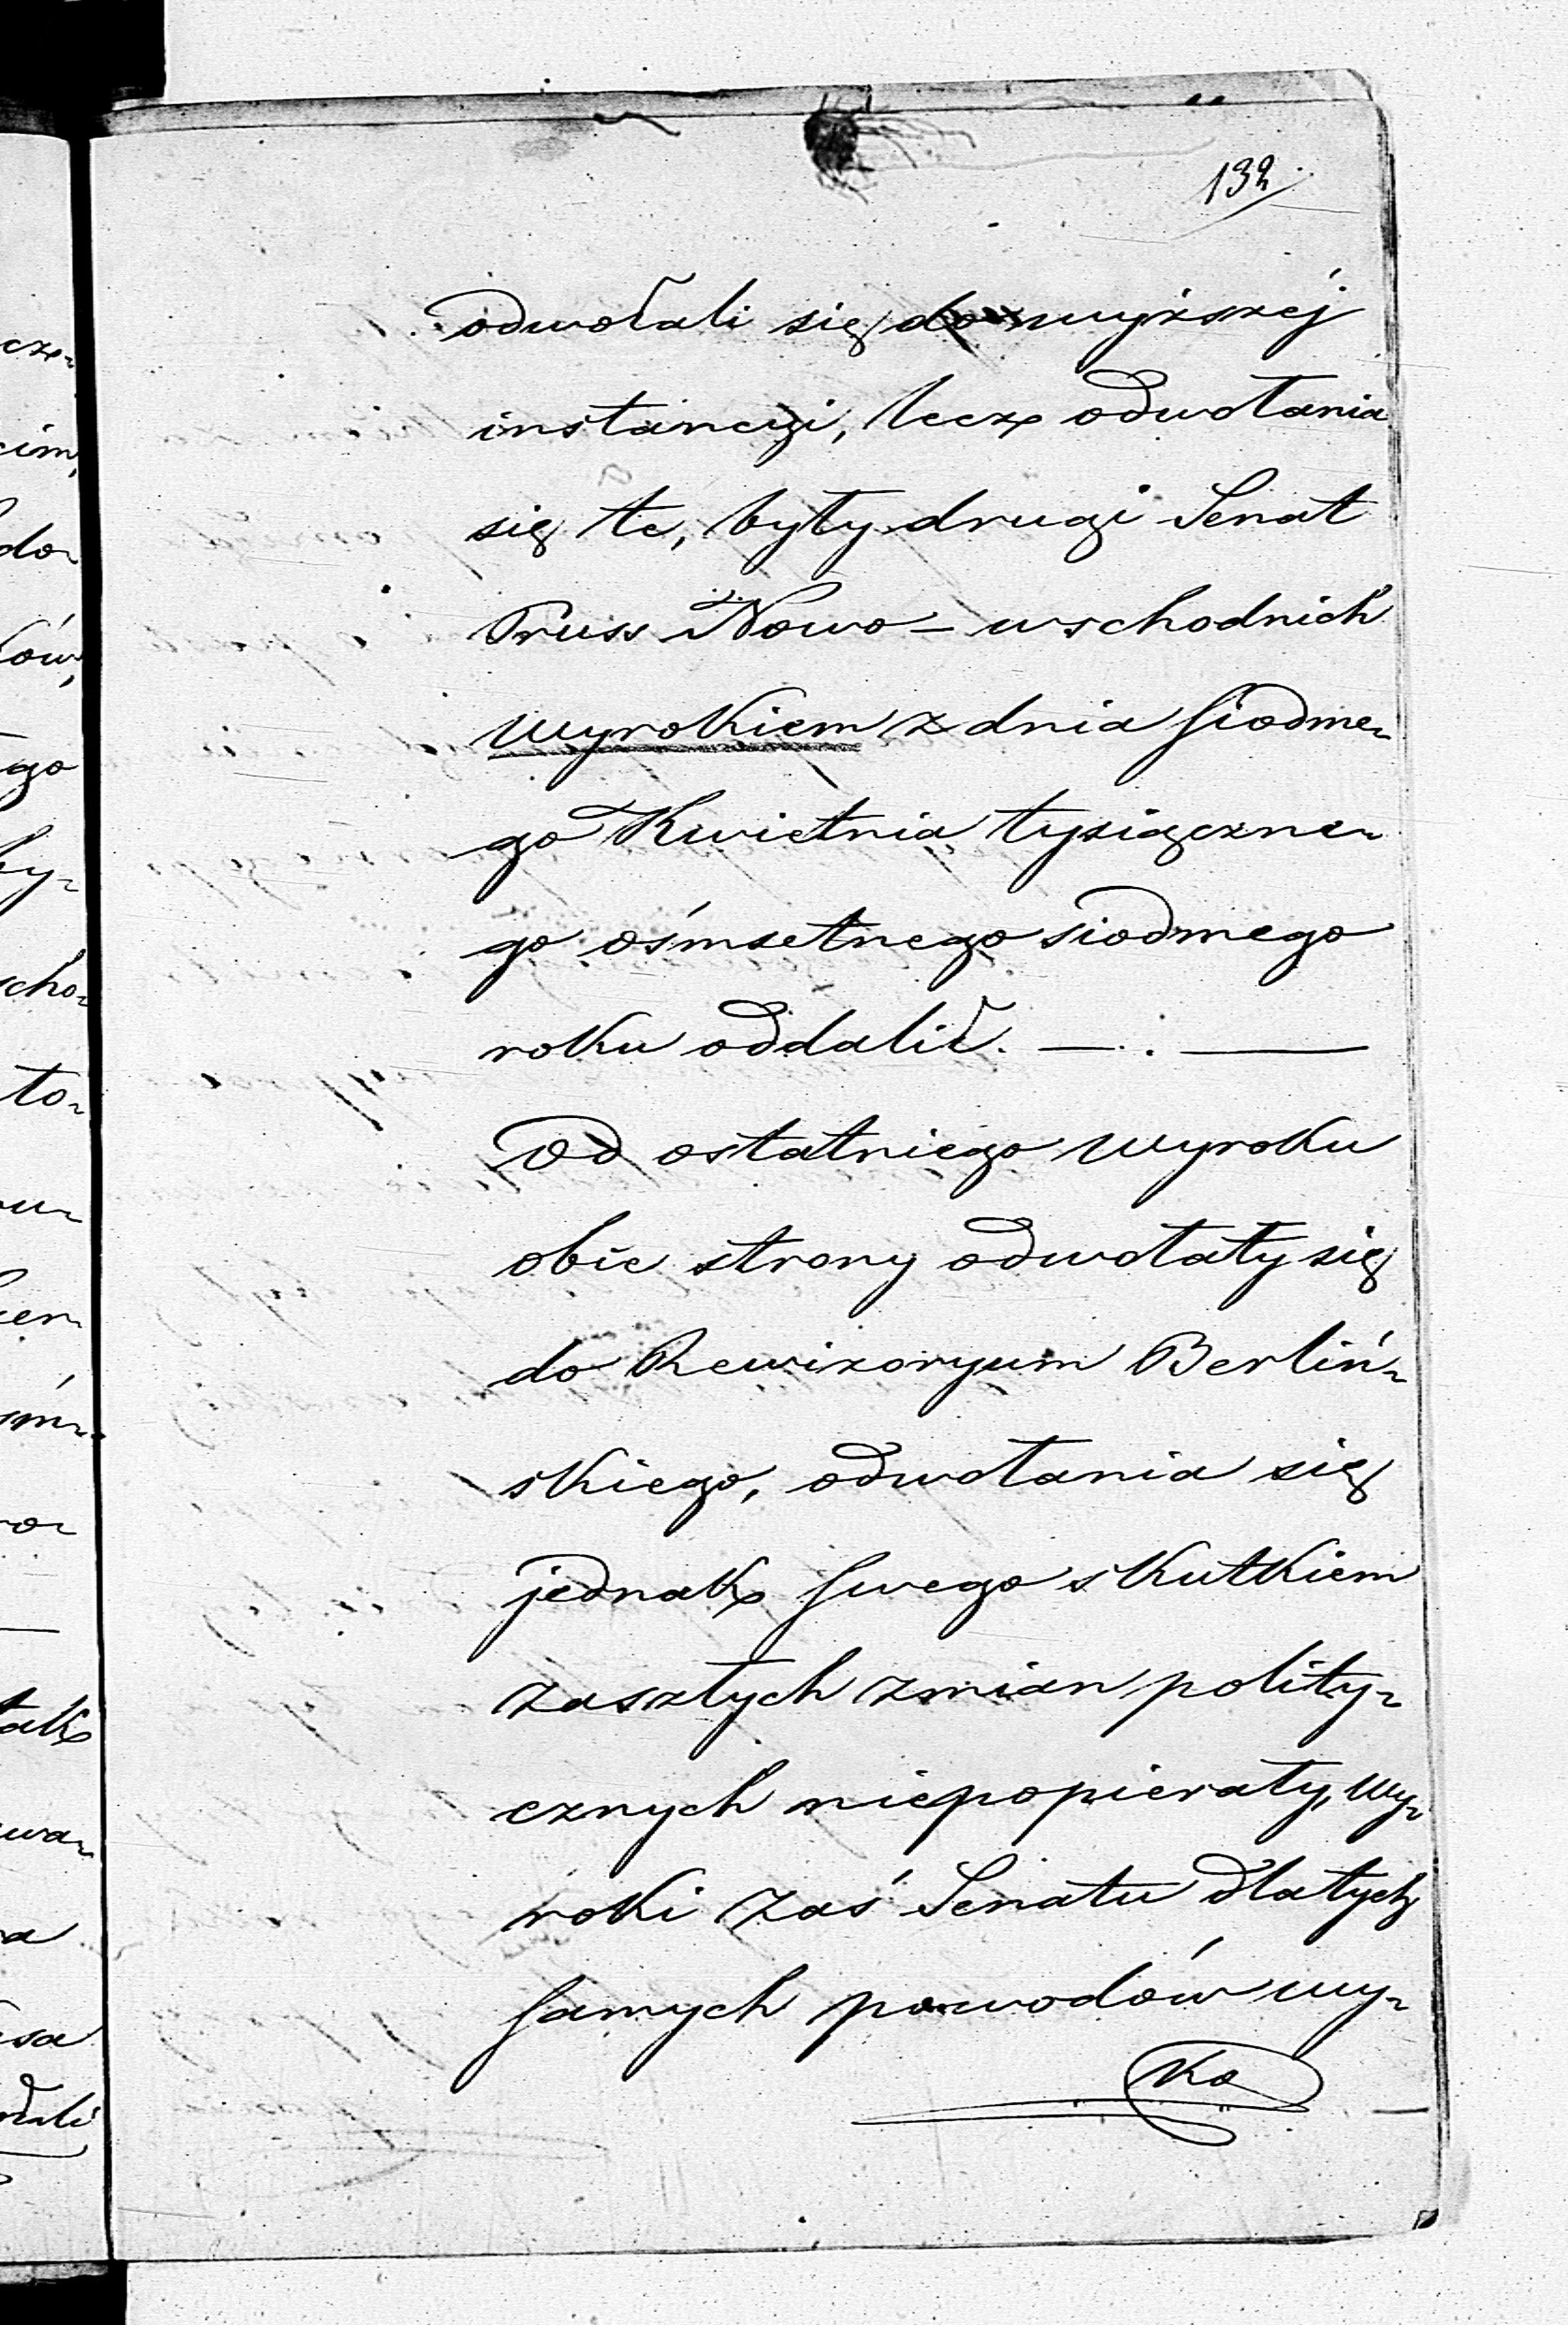 132
odwołali się do wyższéj
instancyi, lecz odwołania
się te, były drugi Senat
Pruss Nowo-wschodnich
wyrokiem z dnia siodme-
go Kwietnia tysiączne-
go óśmsetnego siodmego
roku oddalił. —.—
Od ostatniego wyroku
obie strony odwołały się
do Rewizoryum Berliń-
skiego, odwołania się
jednak swego skutkiem
zaszłych zmian polity-
cznych niepopierały, wy-
roki zaś Senatu dla tych
samych powodów wy-
ko